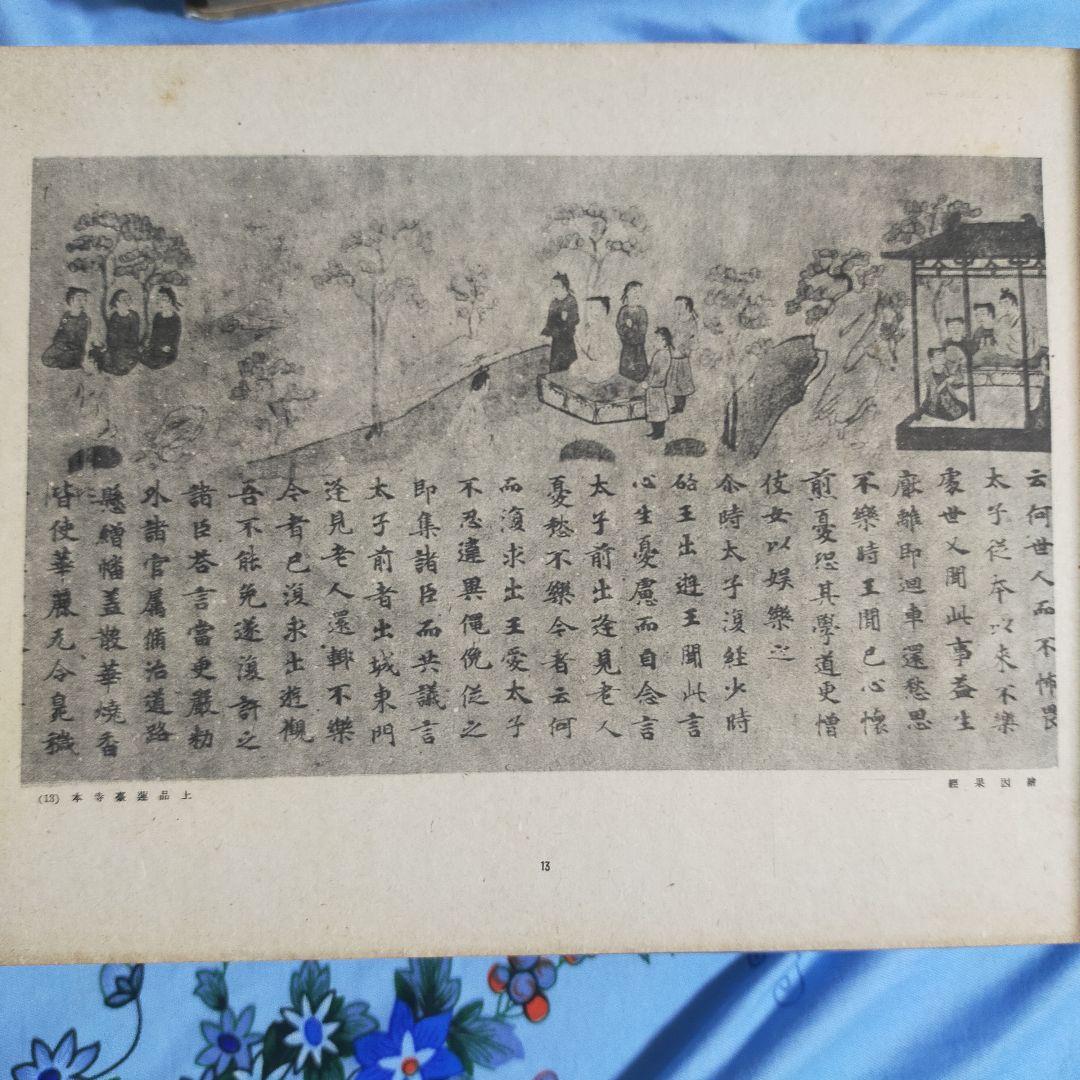 云何世人而不怖畏
太子從本以来不樂
處世又聞此事益生
厭離即迴車還愁思
不樂時王聞已心懷
前憂恐其學道更憎
伎女以娛樂之
尒時太子復經少時
啓王出遊王聞此言
心生憂慮而自念言
太子前出逢見老人
憂愁不樂今者云何
而復求出王愛太子
不忍違異僶俛從之
即集諸臣而共議言
太子前者出城東門
逢見老人還輒不樂
今者已復求出遊觀
吾不能免遂復許之
諸臣荅言當更嚴勅
外諸官属脩治道路
懸繒幡蓋散華燒香
皆使華麗无令臭穢
繪因果經
上品蓮臺寺本 (13)
13